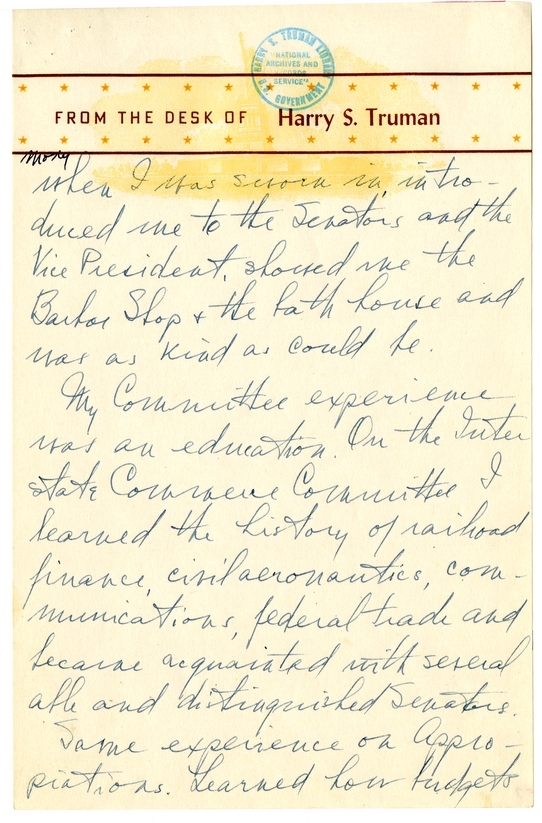 HARRY S. TRUMAN LIBRARY
"NATIONAL
ARCHIVES AND
RECORDS
SERVICE"
U.S. GOVERNMENT
FROM THE DESK OF Harry S. Truman
when I was sworn in, intro-
duced me to the Senators and the
Vice President, showed me the
Barber Shop & the bath house and
was as kind as could be.
My Committee experience
was an education. On the Inter
state Commerce Committee I
learned the history of railroad
finance, civil aeronautics, com-
munications, federal trade and
became acquainted with several
able and distinguished Senators.
Same experience on Appro-
piations. Learned how budgets